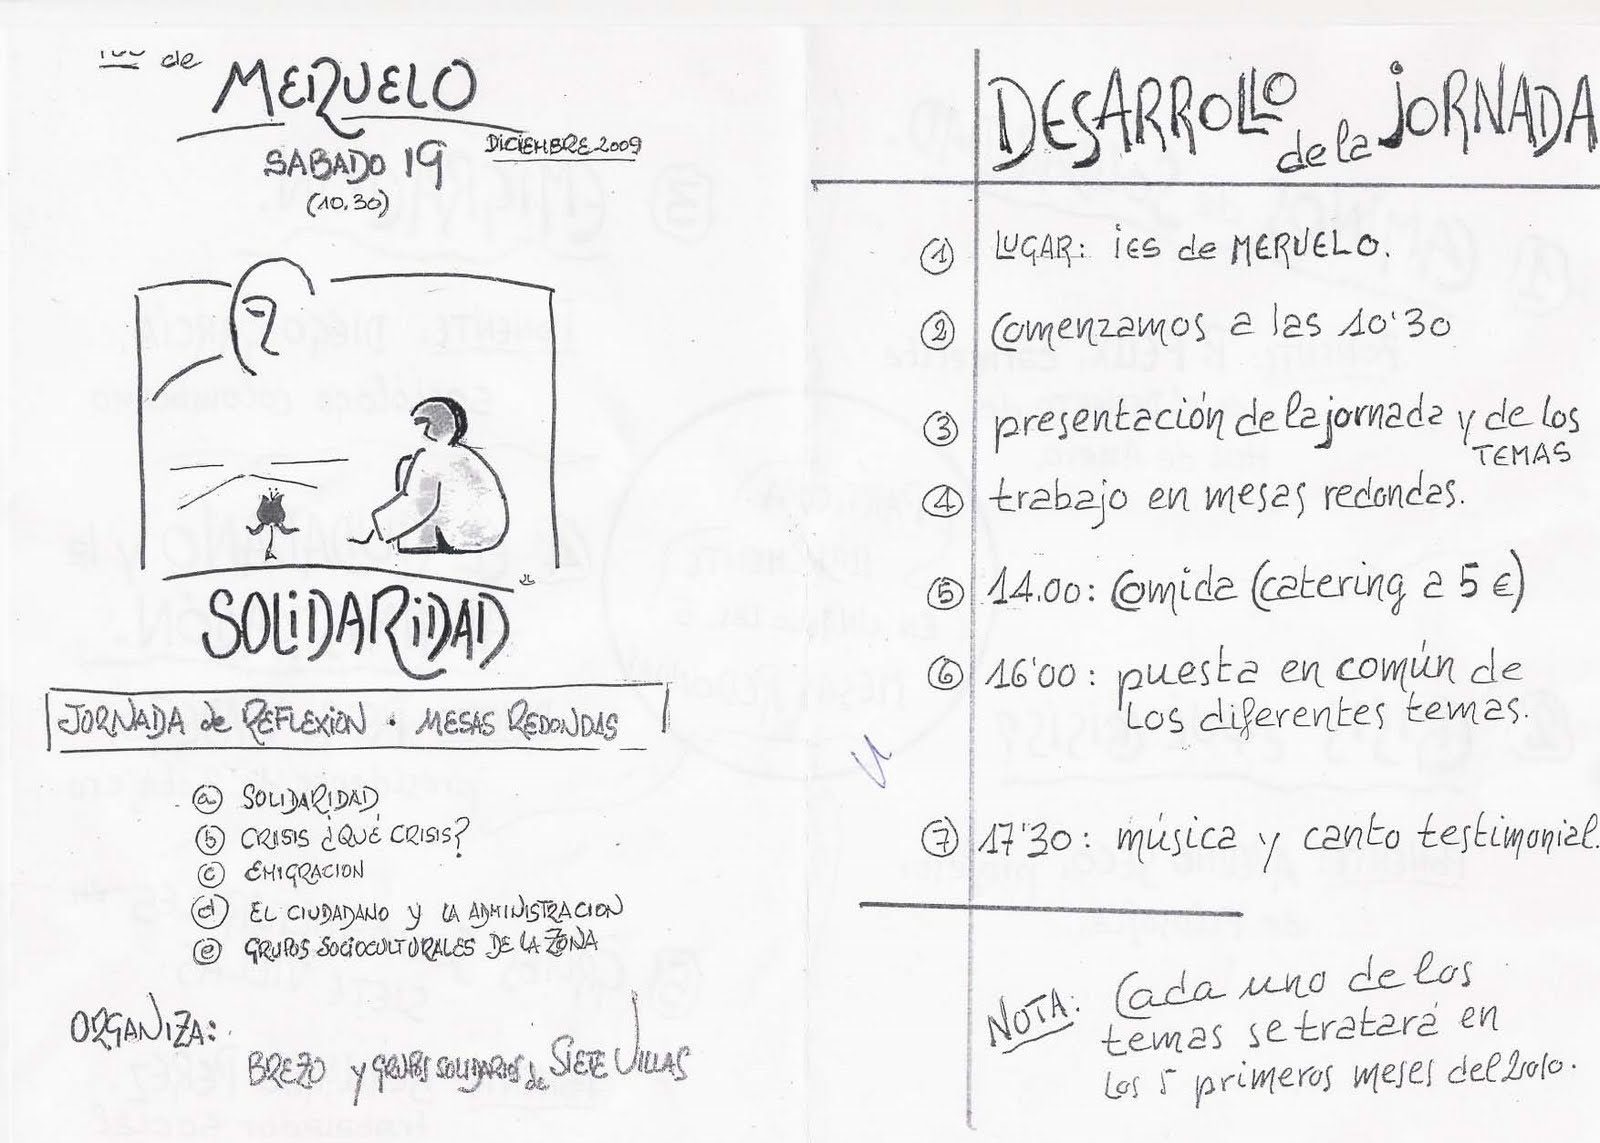 de
MERUELO
SABADO 19
DICIEMBRE 2009
(10.30)
SOLIDARIDAD
JORNADA de REFLEXION • MESAS REDONDAS
a SOLIDARIDAD
b CRISIS ¿QUÉ CRISIS?
c EMIGRACION
d EL CIUDADANO Y LA ADMINISTRACION
e GRUPOS SOCIOCULTURALES DE LA ZONA
ORGANIZA:
BREZO y GRUPOS SOLIDARIOS de SIETE VILLAS
DESARROLLO
de la JORNADA
1 LUGAR: iES de MERUELO.
2 Comenzamos a las 10'30
3 presentación de la jornada y de los
TEMAS
4 trabajo en mesas redondas.
5 14.00: Comida (catering a 5 €)
6 16'00: puesta en común de
los diferentes temas.
7 17'30: música y canto testimonial.
NOTA: Cada uno de los
temas se tratará en
los 5 primeros meses del 2010.